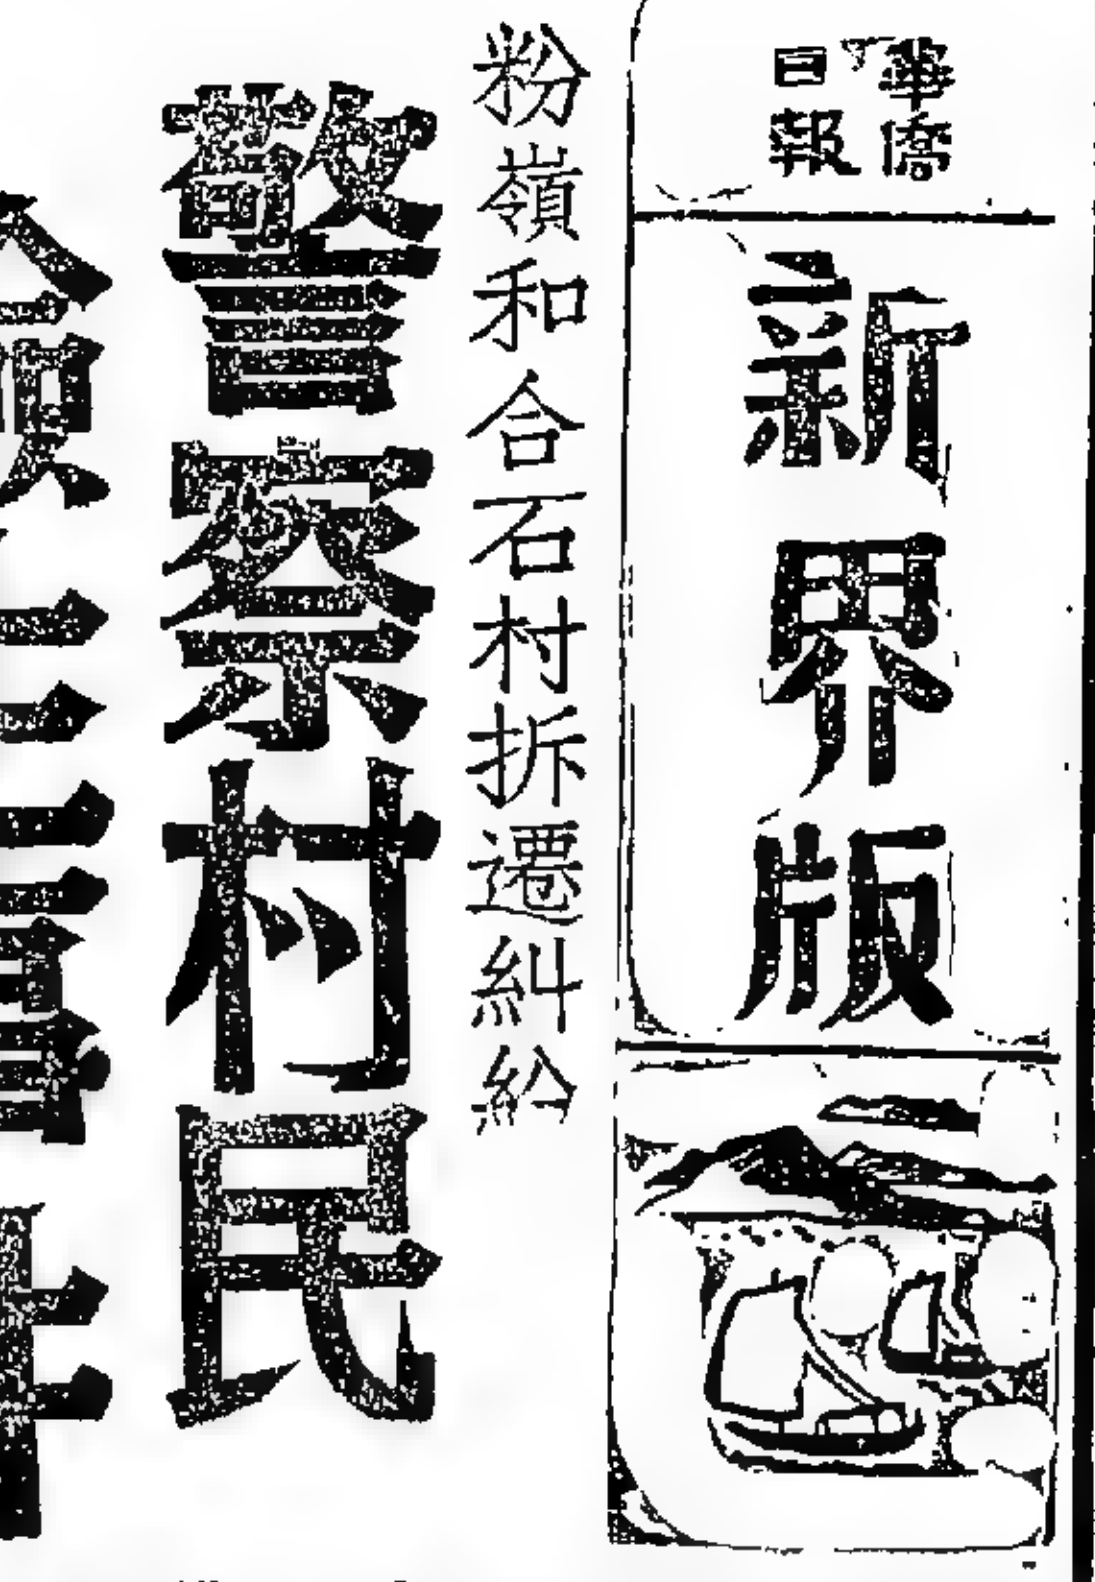 華僑
日報
新界版
粉嶺和合石村拆遷糾紛
警察村民